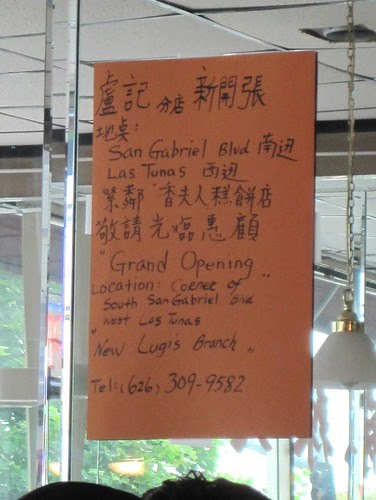 盧記 分店 新開張
地桌:
San Gabriel Blvd 南迅
Las Tunas 西迅
緊鄰"香夫人糕餅店
敬請光臨惠顧
"Grand Opening"
Location: Corner of
South San Gabriel Blvd
West Las Tunas
"New Lugi's Branch"
Tel: (626) 309-9582